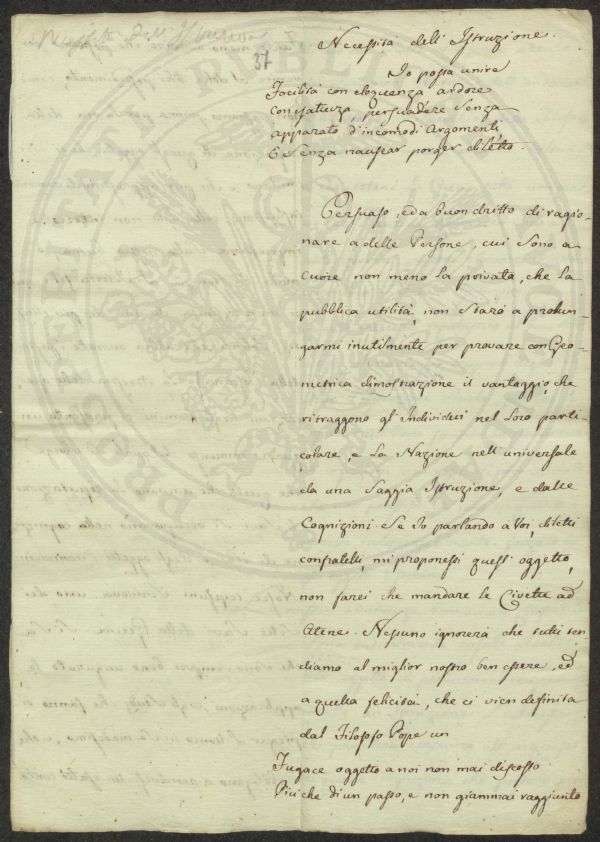 Necessità dell'Istruzione
37
Necessità dell'Istruzione.
Io possa unire
Facilità con eloquenza ardore
Con saturza, persuadere senza
apparato d'incomodi argomenti
E senza nausear porger diletto.
Persuaso, ed a buon dritto di ragio-
nare a delle Persone, cui sono a
cuore non meno la privata, che la
pubblica utilità, non starò a prolun-
garmi inutilmente per provare con Geo-
metrica dimostrazione il vantaggio, che
ritraggono gl'Individui nel loro parti-
colare, e la Nazione nell'universale
da una saggia Istruzione, e dalle
Cognizioni. Se Io parlando a Voi, diletti
confratelli, mi proponessi quest'oggetto,
non farei che mandare le Civette ad
Atene. Nessuno ignorerà che tutti ten-
diamo al miglior nostro ben essere, ed
a quella felicità, che ci vien definita
dal Filosofo Pope un
Fugace oggetto a noi non mai discosto
Più che di un passo, e non giammai raggiunto